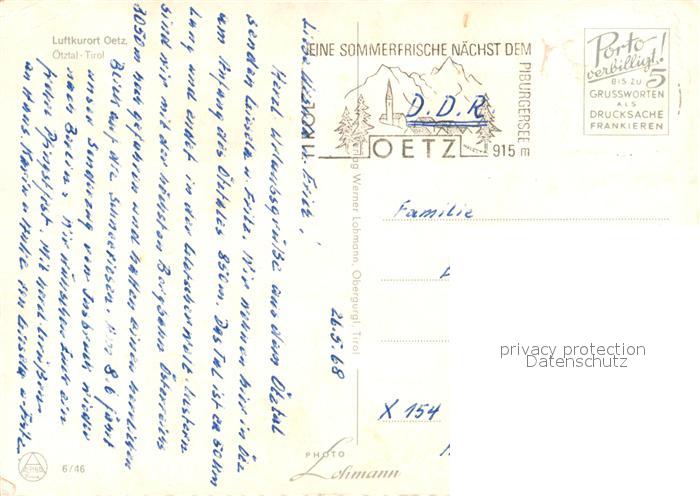 Luftkurort Oetz,
Ötztal - Tirol
EINE SOMMERFRISCHE NÄCHST DEM
PIBURGERSEE
TIROL
OETZ
915 m
D.D.R
Porto
verbilligt!
BIS ZU 5
GRUSSWORTEN
ALS
DRUCKSACHE
FRANKIEREN
Verlag Werner Lohmann, Obergurgl, Tirol
Familie
privacy protection
Datenschutz
X 154
PHOTO
Lohmann
6/46
26.5.68
Erich!
Herzl. Urlaubsgrüße aus dem Ötztal
senden u. Fritz. Wir wohnen hier in Ötz
am Anfang des Ötztales 850m. Das Tal ist ca 50 km
lang und endet in der Gletscherwelt. Gestern
sind wir mit der höchsten Bergbahn Österreichs
3050m hoch gefahren und hatten einen herrlichen
Blick auf die Schneeriesen. 8.6 fährt
unser von Innsbruck wieder
nach Berlin. Wir wünschen Euch ein
Pfingstfest. Mit herzl. Grüßen
an